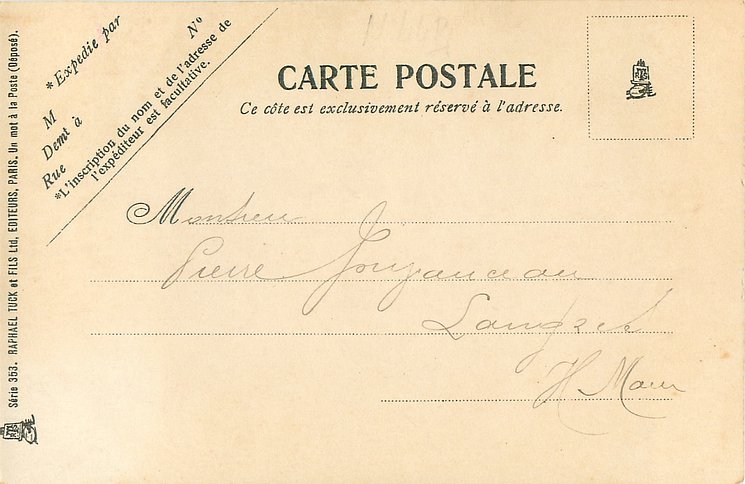 *Expédié par
M
Demt à
Rue Nº
*L'inscription du nom et de l'adresse de
l'expéditeur est facultative.
CARTE POSTALE
Ce côte est exclusivement réservé à l'adresse.
Monsieur
Pierre
Langres
H Marne
Série 353. RAPHAEL TUCK et FILS Ltd, EDITEURS, PARIS. Un mot à la Poste (Déposé).